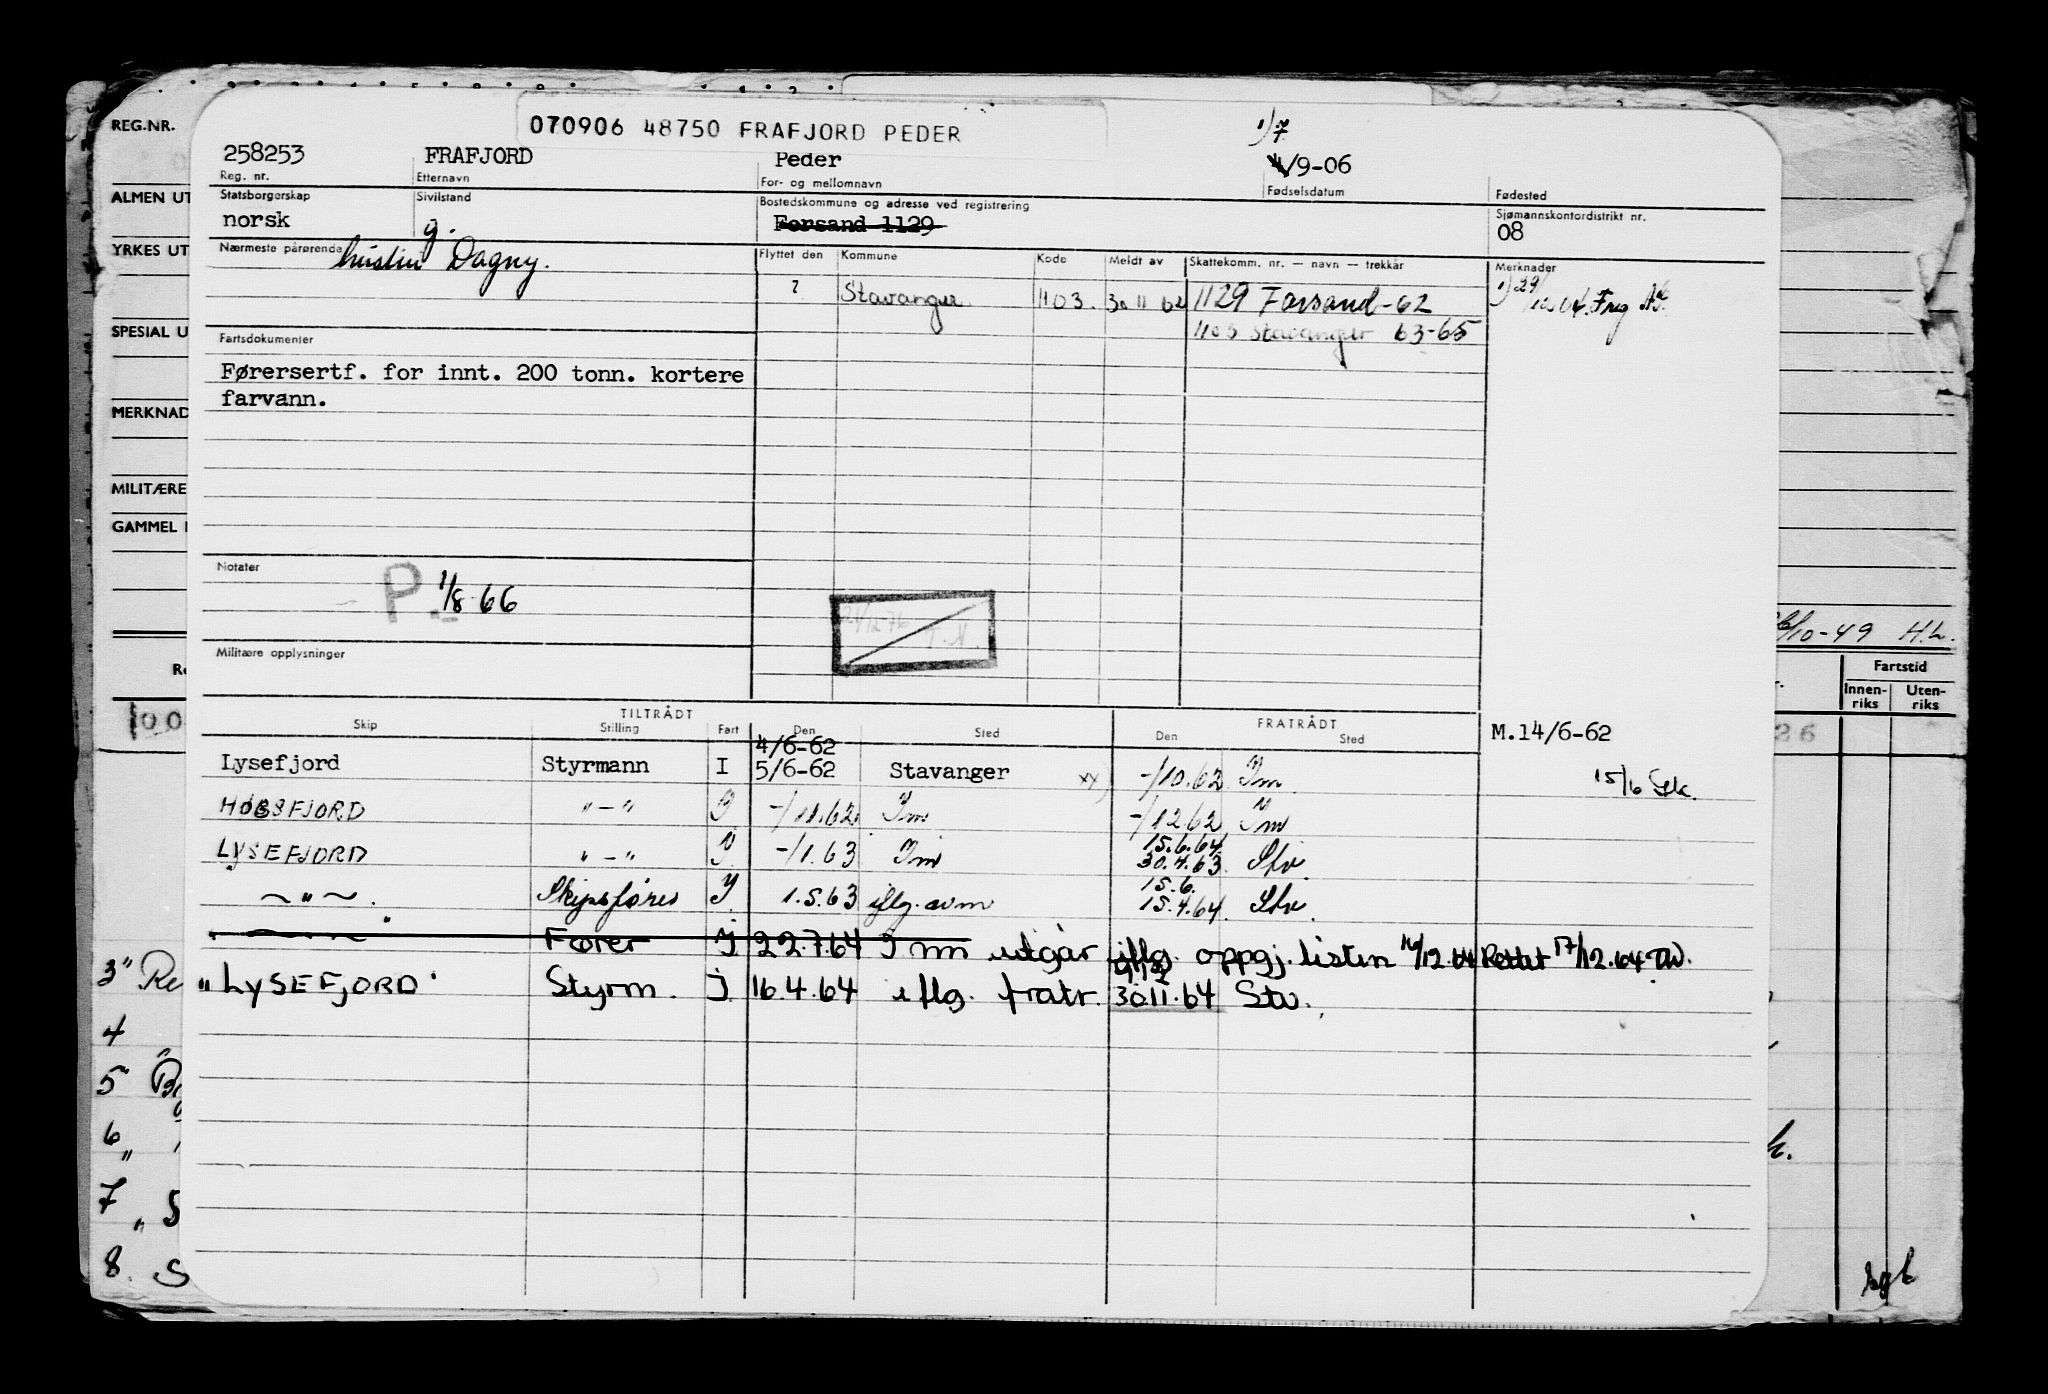 REG.NR.
070906 48750 FRAFJORD PEDER
1)7
258253 FRAFJORD Peder 4/9-06
Reg. nr. Etternavn For- og mellomnavn Fødselsdatum Fødested
ALMEN UT
Statsborgerskap Sivilstand Bostedskommune og adresse ved registrering Sjømannskontordistrikt nr.
norsk g. Forsand 1129 08
YRKES UT
Nærmeste pårørende hustru Dagny. Flyttet den Kommune Kode Meldt av Skattekomm. nr. — navn — trekkår Merknader
? Stavanger 1103. 30 11 62 1129 Forsand-62 1) 29/12.64. Frg
1103 Stavanger 63-65
SPESIAL U
Fartsdokumenter
Førersertf. for innt. 200 tonn. kortere
farvann.
MERKNAD
MILITÆRE
GAMMEL
Notater
P. 1/8 66
21/12-76
/10-49 H.L.
Militære opplysninger
Fartstid
Innen-riks Uten-riks
TILTRÅDT FRATRÅDT
Skip Stilling Fart Den Sted Den Sted
M.14/6-62
26
4/6-62
Lysefjord Styrmann I 5/6-62 Stavanger xx) -/10.62 Im 15/6
HØGSFJORD "-" I -/11.62 Im -/12 62 Im
15.6.64
LYSEFJORD "-" I -/1.63 Im 30.4.63 Stv.
15.6.
~"~. Skipsfører I 1.5.63 iflg. avm 15.4.64 Stv.
" Fører I 22.7.64 Im utgår iflg. oppgj. listen 16/12.64 Rettet 17/12.64
3" Re
"LYSEFJORD" Styrm. I 16.4.64 iflg. fratr. 30.11.64 Stv.
4
5
6
7
8. S